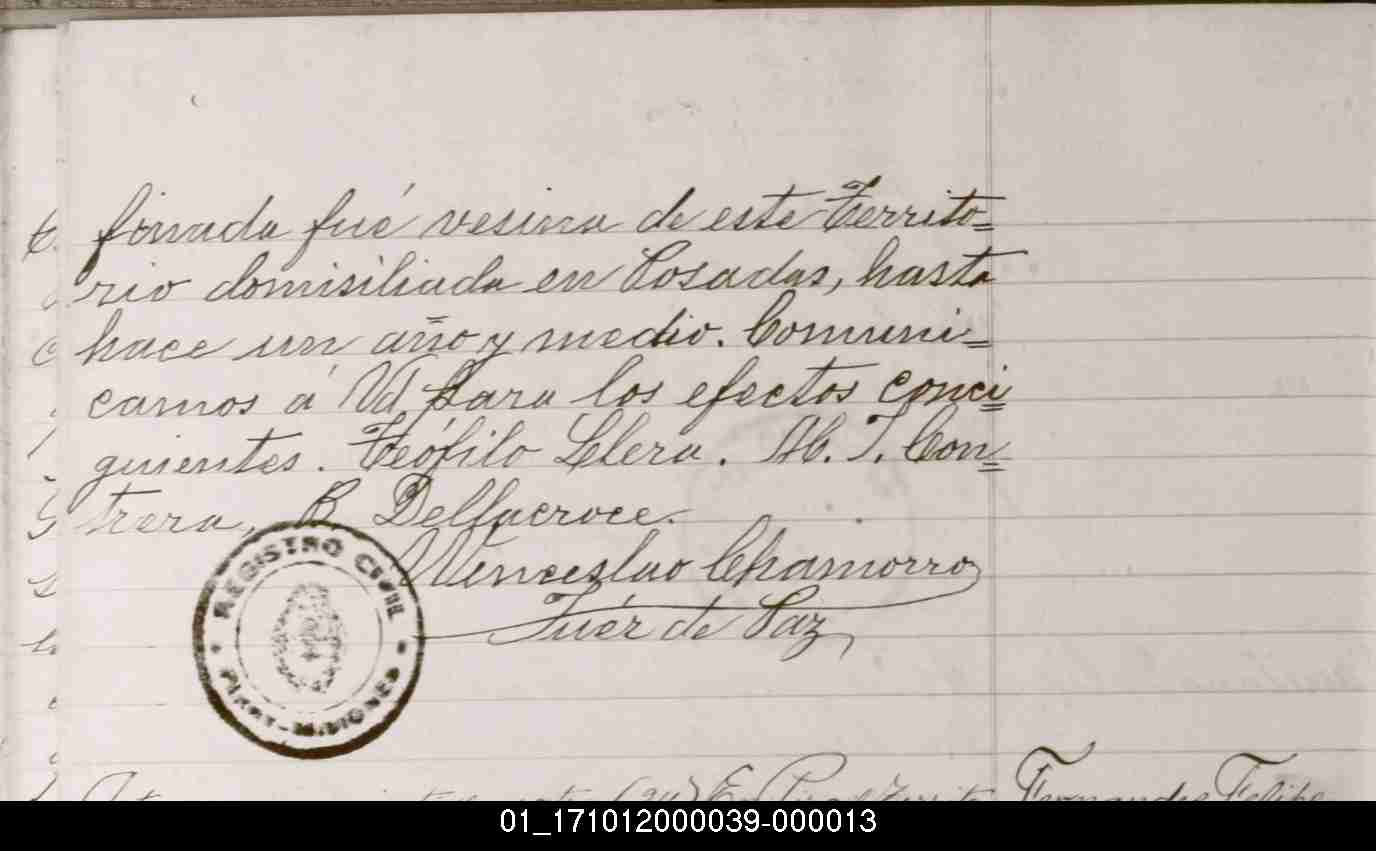 finada fué vesina de este Territo=
rio domisiliada en Posadas, hasta
hace un año y medio. Comuni=
camos á Vd para los efectos conci=
guientes. Teófilo Llera. Ab. T. Con=
trera, B. Dellacroce.
Wenceslao Chamorro
Juéz de Paz
REGISTRO CIVIL
MISIONES
Fernandez Felipe
01_171012000039-000013